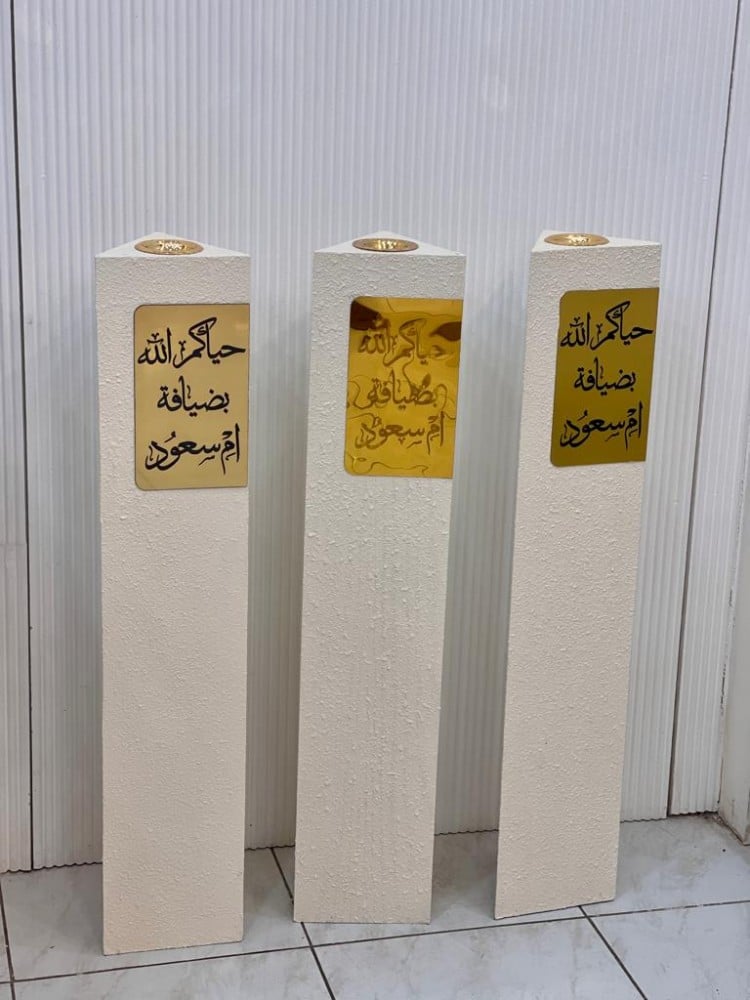 حياكم الله
بضيافة
ام سعود
حياكم الله
بضيافة
ام سعود
حياكم الله
بضيافة
ام سعود